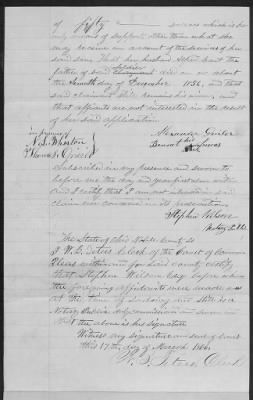 of fifty ... which is her
only means of support other than what she
may receive on account of the services of her
said son. That her husband Asher Hunt the
father of said soldier died on or about
the Seventh day of December 1856, and that
said claimant still remains his widow and
that affiants are not interested in the result
of her said application.
In presence of
N. L. Wharton
Thomas
Alexander
his
Subscribed in my presence and sworn to
before me the day and year first above written
And I certify that I am not interested in said
claim nor concerned in its prosecution.
Stephen Wilson
Notary Public
The State of Ohio Noble County SS
I W. L. Peters Clerk of the Court of Common
Pleas within and for said County certify
that Stephen Wilson Esq before whom
the foregoing affidavits were made was
at the time of so doing and still is a
Notary Public duly commission and sworn
that the above is his signature
Witness my signature and seal of Court
this 17th day of March 186
Clerk